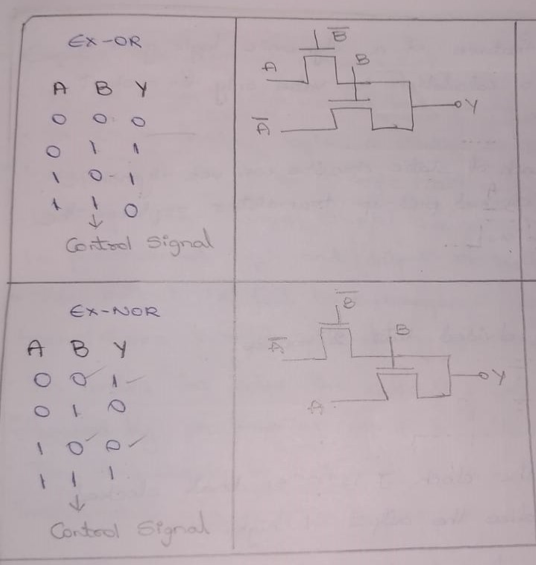 EX-OR
A B Y
0 0 0
0 1 1
1 0 1
1 1 0
Control Signal
B̅
A
B
A̅
Y
EX-NOR
A B Y
0 0 1
0 1 0
1 0 0
1 1 1
Control Signal
B̅
A̅
B
A
Y